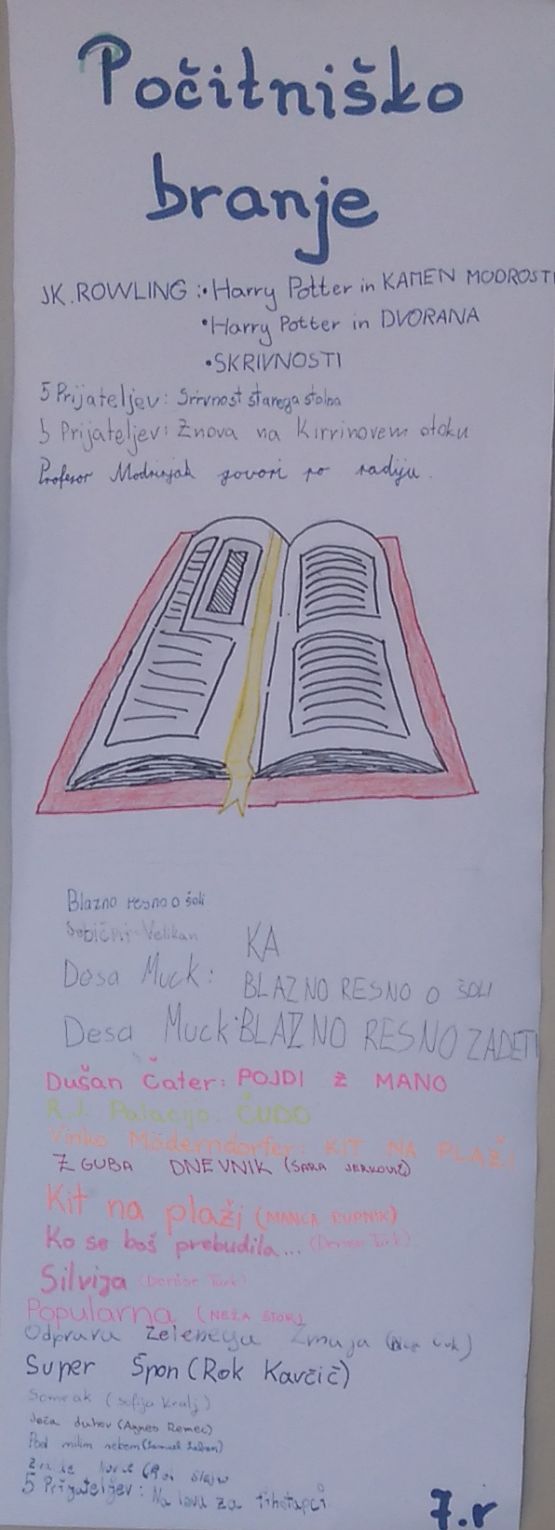 Počitniško
branje
JK. ROWLING :• Harry Potter in KAMEN MODROSTI
• Harry Potter in DVORANA
• SKRIVNOSTI
5 Prijateljev: Srivnost starega stolna
5 Prijateljev: Znova na Kirrinovem otoku
Profesor Modrinjak govori po radiju.
Blazno resno o šoli
Sebični Velikan KA
Desa Muck: BLAZNO RESNO O ŠOLI
Desa Muck: BLAZNO RESNO ZADETI
Dušan Čater: POJDI Z MANO
R.J. Palacijo: ČUDO
Vinko Möderndorfer: KIT NA PLAŽI
ZGUBA DNEVNIK (SARA JERKOVIČ)
Kit na plaži (MANCA RUPNIK)
Ko se boš prebudila... (Turk)
Silvija (Turk)
Popularna (NEŽA ŠTOR)
Odprava Zelenega Zmaja
Super Špon (Rok Kavčič)
Somrak (Sofija Kralj)
Ječa duhov (Agnes Remec)
Pod milim nebom (Samuel
5 Prijateljev: Na lovu za tihotapci
7.r